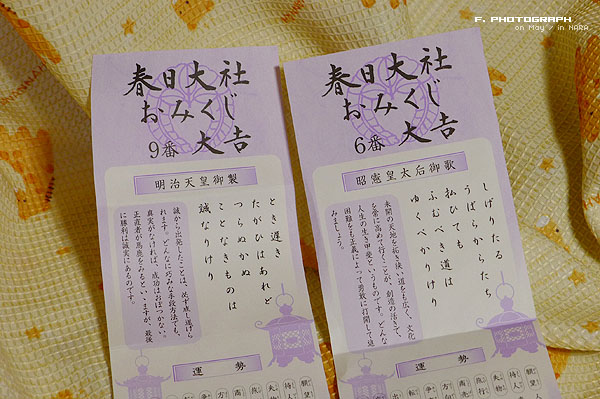 F. PHOTOGRAPH
on May / in NARA
春日大社
おみくじ
9番 大吉
明治天皇御製
とき遅き
たがひはあれど
つらぬかぬ
ことなきものは
誠なりけり
誠から出発したことは、必ず成し遂げら
れます。どんなに巧みな手段方法でも、
真実がなければ、成功はおぼつかない。
正直者が馬鹿をみるといゝますが、最後
に勝利は誠実にあるのです。
運勢
春日大社
おみくじ
6番 大吉
昭憲皇太后御歌
しげりたる
うばらからたち
払ひても
ふむべき道は
ゆくべかりけり
未開の天地を拓き狭い道をも広く、文化
を常に高めて行くことが、創造の活きで、
人生の生き甲斐というものです。どんな
困難をも正義によって勇敢に打開して進
みましょう。
運勢